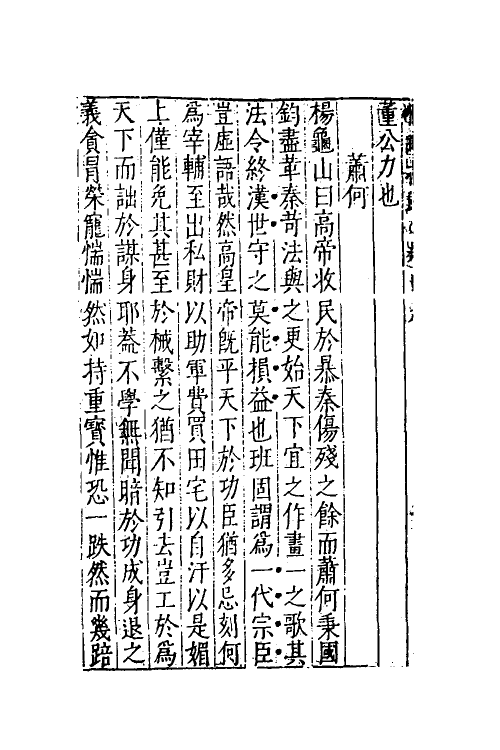 董公力也
蕭何
楊龜山曰高帝收民於暴秦傷殘之餘而蕭何秉國
鈞盡革秦苛法與之更始天下宜之作畫一之歌其
法令終漢世守之莫能損益也班固謂爲一代宗臣
豈虛語哉然高皇帝旣平天下於功臣猶多忌刻何
爲宰輔至出私財以助軍費買田宅以自汙以是媚
上僅能免其甚至於械繫之猶不知引去豈工於爲
天下而詘於謀身耶葢不學無聞暗於功成身退之
義貪冐榮寵惴惴然如持重寶惟恐一跌然而幾踣